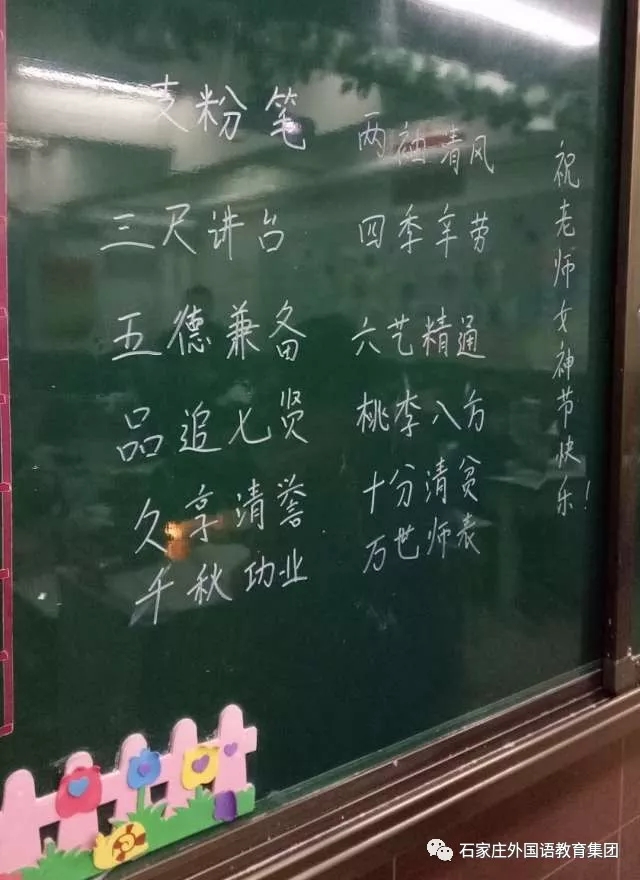 支粉笔 两袖清风
三尺讲台 四季辛劳
五德兼备 六艺精通
品追七贤 桃李八方
久享清誉 十分清贫
千秋功业 万世师表
祝老师女神节快乐!
石家庄外国语教育集团